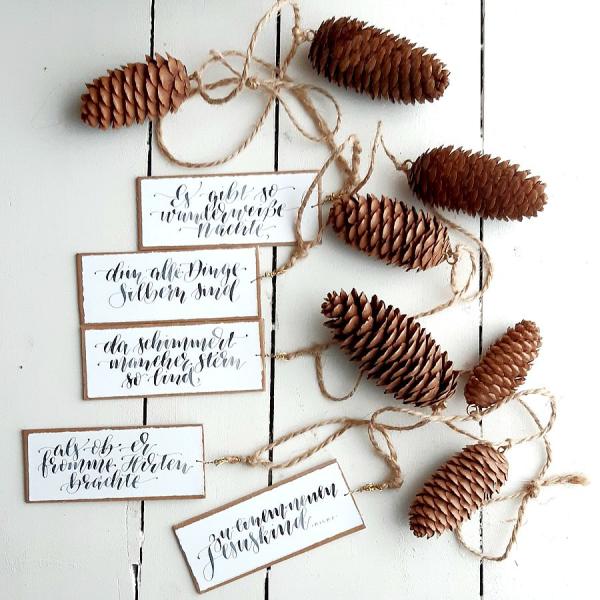 Es gibt so
wunderweiße
Nächte,
drin alle Dinge
Silbern sind
da schimmert
mancher Stern
so lind,
als ob er
fromme Hirten
brächte
zu einem neuen
Jesuskind